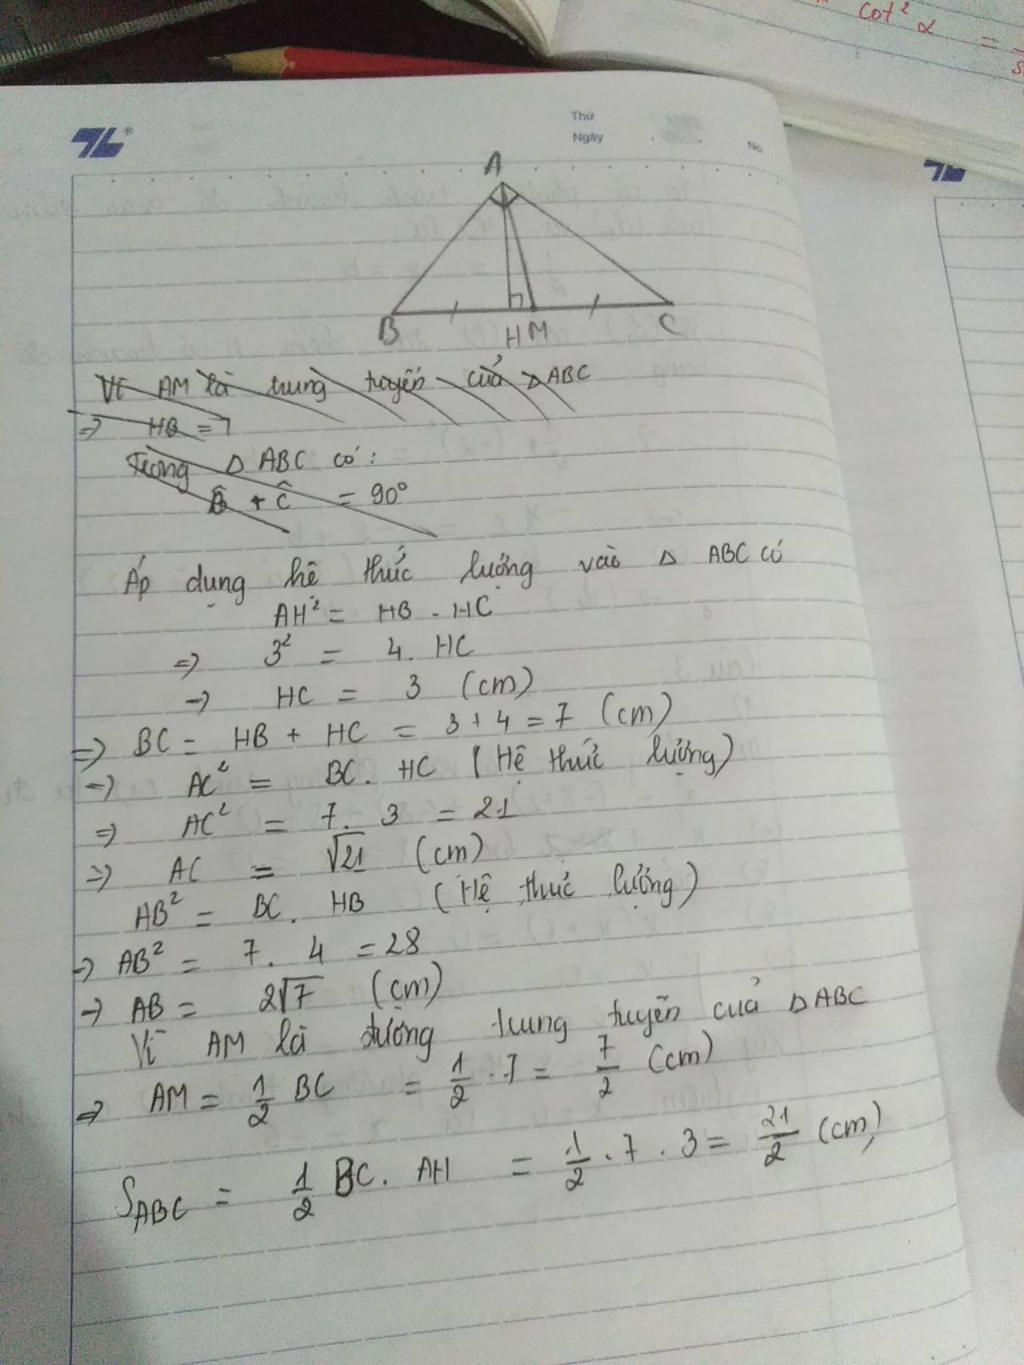 cot² α =
Thứ
Ngày
No.
A
B H M C
Vì AM là trung tuyến của △ABC
=> HB =
Trong △ ABC có:
B̂ + Ĉ = 90°
Áp dụng hệ thức lượng vào △ ABC có
AH² = HB . HC
=> 3² = 4. HC
=> HC = 3 (cm)
=> BC = HB + HC = 3 + 4 = 7 (cm)
=> AC² = BC. HC (Hệ thức lượng)
=> AC² = 7. 3 = 21
=> AC = √21 (cm)
AB² = BC. HB (Hệ thức lượng)
=> AB² = 7. 4 = 28
=> AB = 2√7 (cm)
Vì AM là đường trung tuyến của △ABC
=> AM = 1/2 BC = 1/2 . 7 = 7/2 (cm)
S_ABC = 1/2 BC. AH = 1/2 . 7 . 3 = 21/2 (cm)